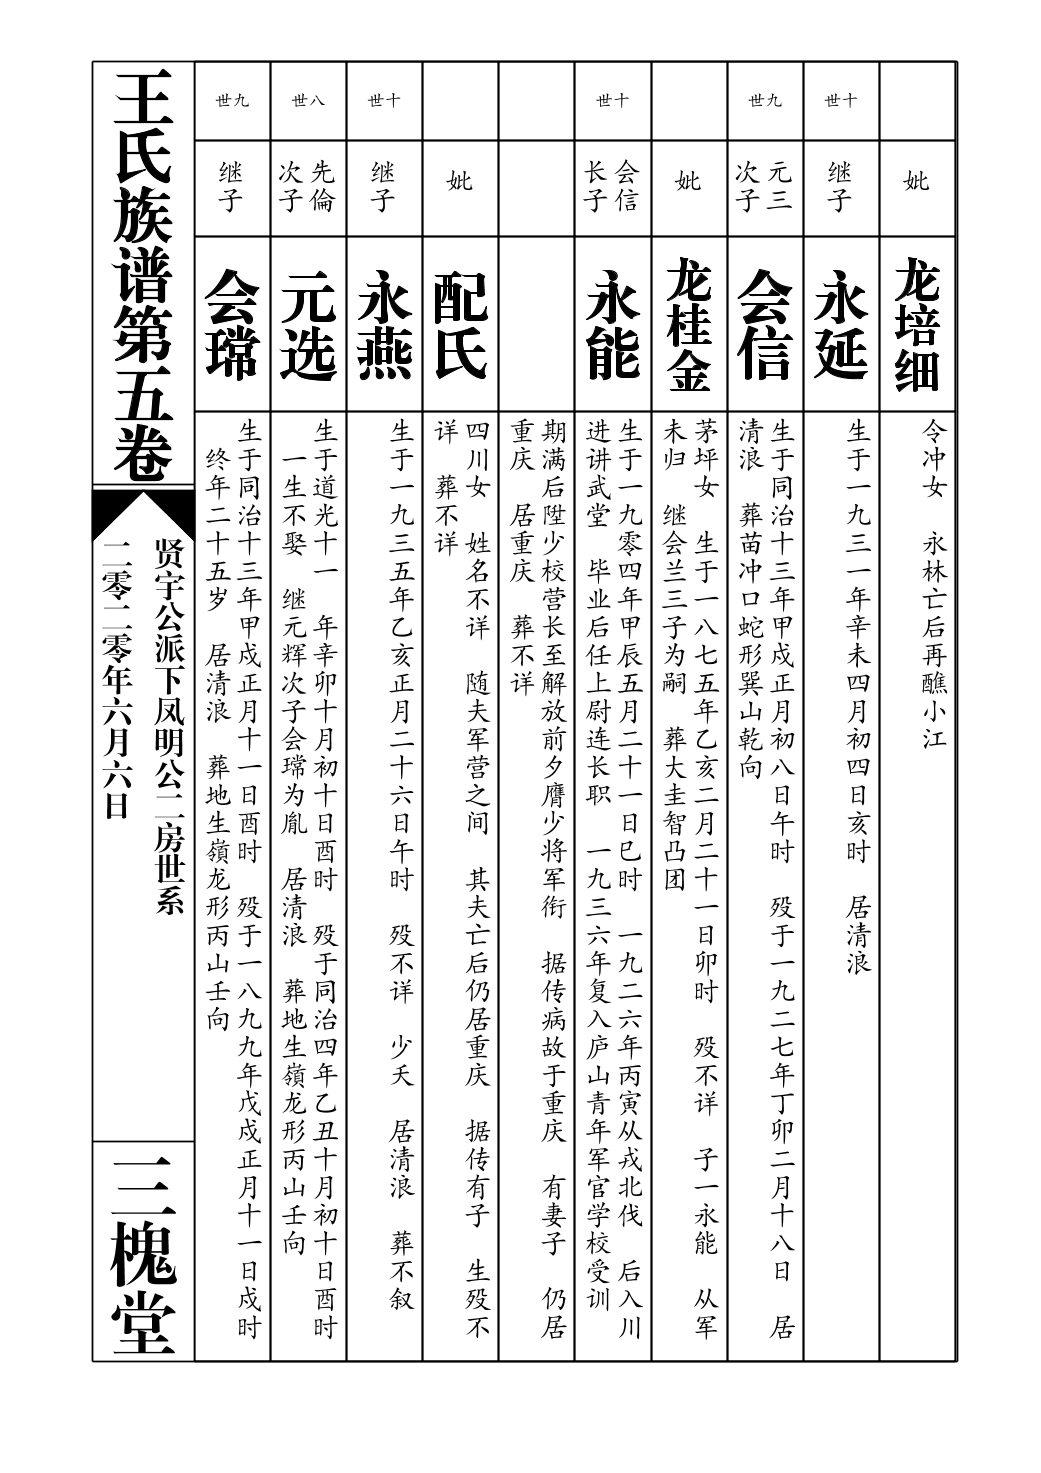 妣
龙培细
令冲女　永林亡后再醮小江
十世
继子
永延
生于一九三一年辛未四月初四日亥时　居清浪
九世
元三
次子
会信
生于同治十三年甲戍正月初八日午时　殁于一九二七年丁卯二月十八日　居
清浪　葬苗冲口蛇形巽山乾向
妣
龙桂金
茅坪女　生于一八七五年乙亥二月二十一日卯时　殁不详　子一永能　从军
未归　继会兰三子为嗣　葬大圭智凸团
十世
会信
长子
永能
生于一九零四年甲辰五月二十一日巳时　一九二六年丙寅从戎北伐　后入川
进讲武堂　毕业后任上尉连长职　一九三六年复入庐山青年军官学校受训
期满后陞少校营长至解放前夕膺少将军衔　据传病故于重庆　有妻子　仍居
重庆　居重庆　葬不详
妣
配氏
四川女　姓名不详　随夫军营之间　其夫亡后仍居重庆　据传有子　生殁不
详　葬不详
十世
继子
永燕
生于一九三五年乙亥正月二十六日午时　殁不详　少夭　居清浪　葬不叙
八世
先倫
次子
元选
生于道光十一　年辛卯十月初十日酉时　殁于同治四年乙丑十月初十日酉时
一生不娶　继元辉次子会瑺为胤　居清浪　葬地生嶺龙形丙山壬向
九世
继子
会瑺
生于同治十三年甲戍正月十一日酉时　殁于一八九九年戊戍正月十一日戍时
终年二十五岁　居清浪　葬地生嶺龙形丙山壬向
王氏族谱第五卷
贤宇公派下凤明公二房世系
二零二零年六月六日
三槐堂